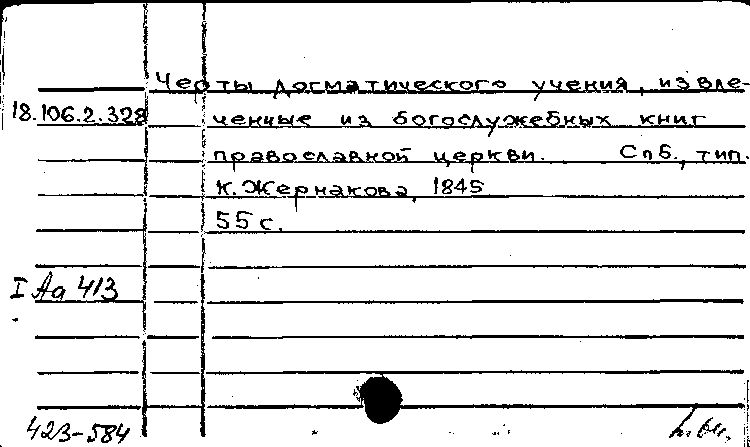 Черты догматического учения, извле-
18.106.2.328 ченные из богослужебных книг
православной церкви. Спб., тип.
К. Жернакова, 1845
55 с.
I Аа 413
423-584